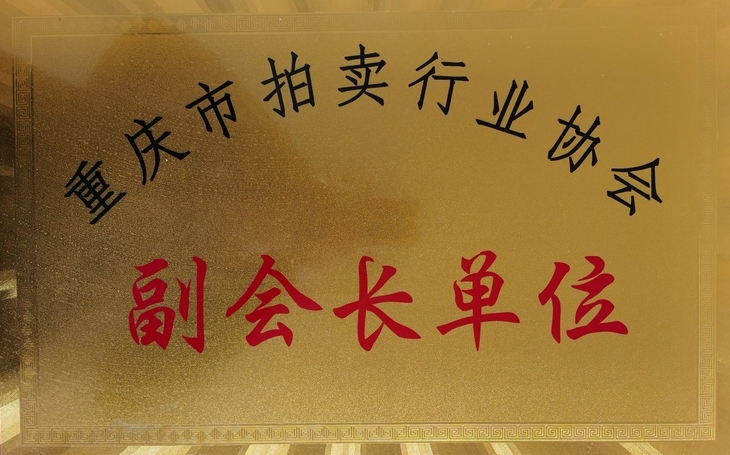 重庆市拍卖行业协会
副会长单位